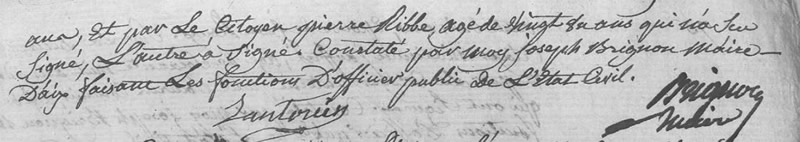 ans, Et par Le Citoyen pierre Ribbe, agé de vingt un ans qui n'a Seu
Signé, L'autre a Signé. Constaté par moy Joseph Brignon Maire
D'aix faisant Les fonctions D'officier public de L'Etat Civil.
Santorin
Brignon
maire